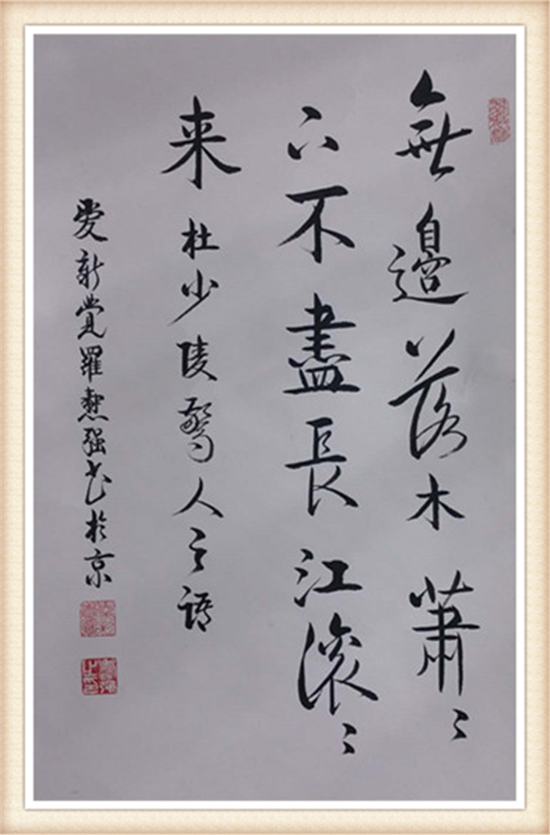 無邊落木蕭〻
下不盡長江滾〻
来 杜少陵驚人之語
愛新覺羅懿强书於京